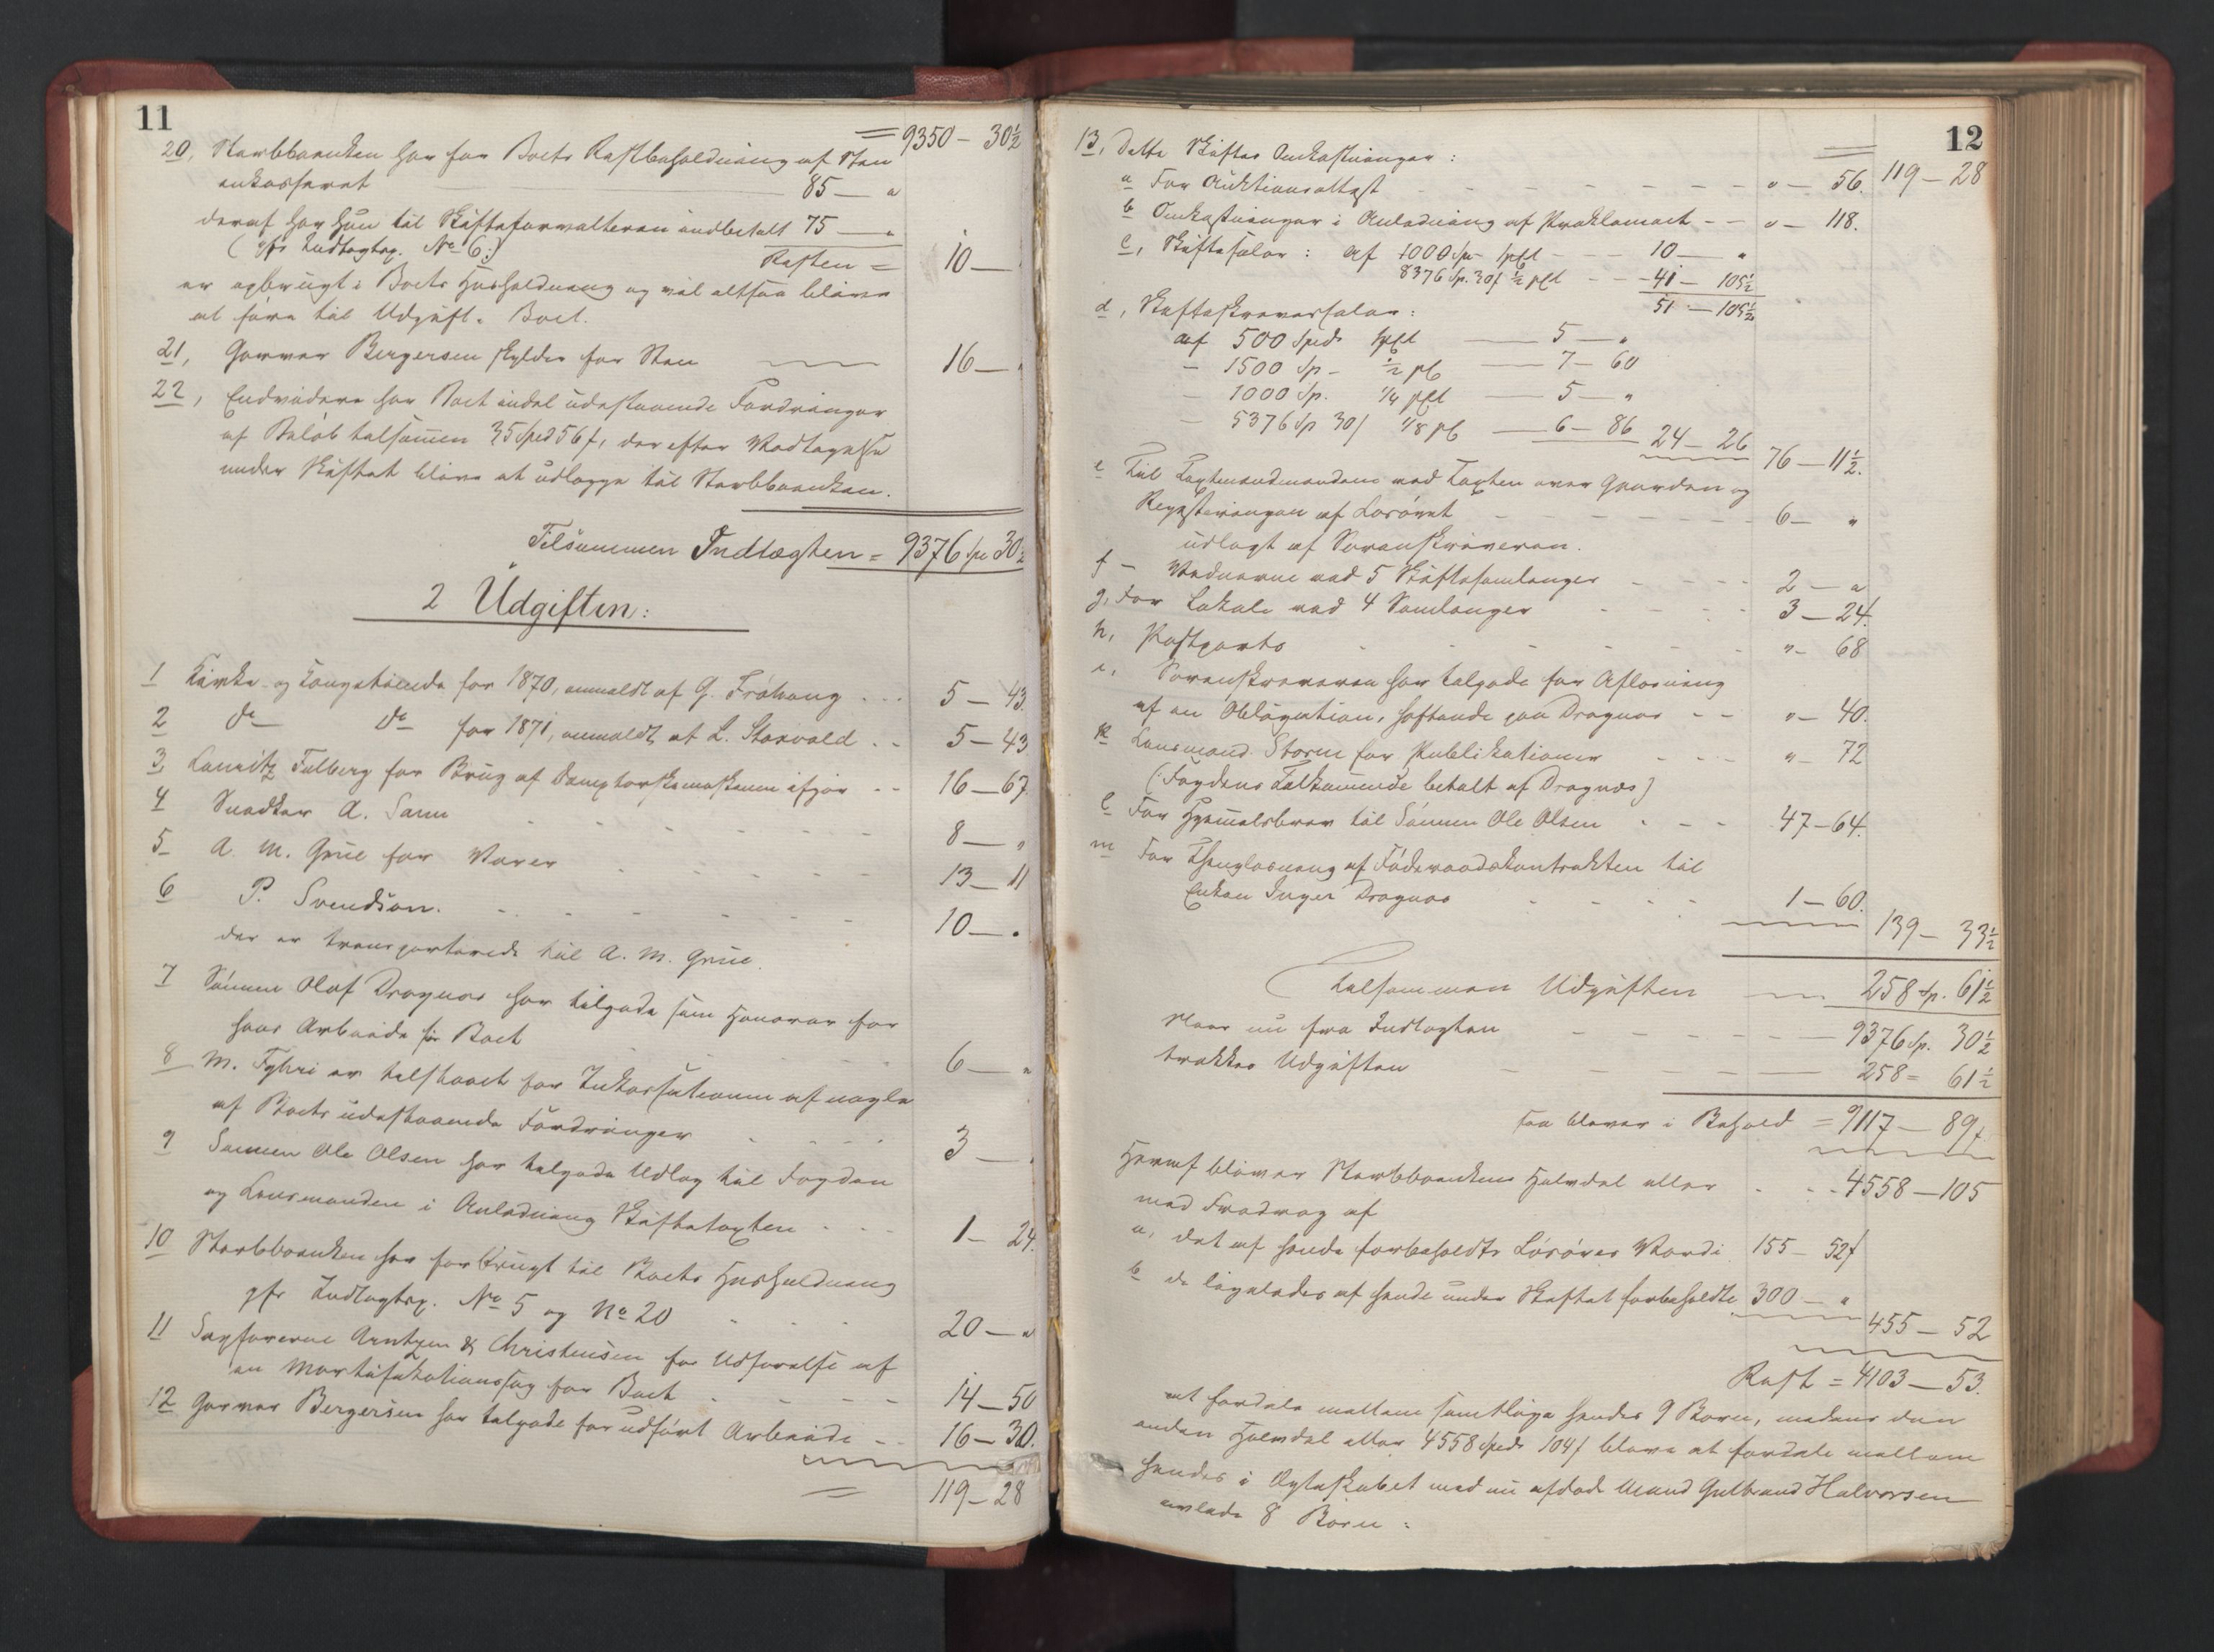 11
= 9350 - 30½
20, Stervboenken har for Boets Restbeholdning af Korn
inkasseret 85 — "
deraf har hun til Skifteforvalteren indbetalt 75 — "
(cfr Indtægtsp. No 6.)
Resten = 10 — "
er opbrugt i Boets Husholdning og vil altsaa blive
at føre til Udgift i Boet.
21, Garver Bergersen skylder for Korn 16 — "
22, Endvidere har Boet endel udestaaende Fordringer
af Beløb tilsammen 35 Spd 56 ſ, der efter Vedtagelse
under Skiftet blive at udlægge til Stervboenken.
Tilsammen Indtægten = 9376 Sp 30½
2 Udgiften:
1 Kirke- og Kongetiende for 1870, anmeldt af G. Frøhaug . . . 5 — 43.
2 do do for 1871, anmeldt af L. Staxvold . . 5 — 43
3, Lauritz Fulberg for Brug af Damptærskemaskinen ifjor - - 16 — 67
4 Snedker A. Sann - - - - 8 — "
5 A. M. Grue for Varer 13 — 11
6 P. Svendsen. - - - - 10 — "
der er transporterede til A. M. Grue.
7 Sønnen Olaf Dragnæs har tilgode som Honorar for
hans Arbeide for Boet 6 — "
8 M. Fyhri er tilstaaet for Inkassationen af nogle
af Boets udestaaende Fordringer 3 — "
9 Sønnen Ole Olsen har tilgode Udlæg til Fogden
og Lensmanden i Anledning Skiftetaxten - - - 1 — 24.
10 Stervboenken har forbrugt til Boets Husholdning
cfr Indtægtsp. No 5 og No 20 20 — "
11 Sagførerne Arntzen & Christensen for Udførelse af
en Mortifikationssag for Boet - - - - 14 — 50
12 Garver Bergersen har tilgode for udført Arbeide - - 16 — 30.
= 119 — 28
12
= 119 — 28
13, Dette Skiftes Omkostninger:
a For Auktionsattest - - - - " — 56.
b Omkostninger i Anledning af Proklamaet - - " — 118.
c, Skiftesalær: af 1000 Sp. 1 pCt - - 10 — "
8376 Sp. 30 ſ ½ pCt - - 41 — 105½
51 — 105½
d, Skifteskriversalær:
af 500 Spd. 1 pCt — 5 — "
- 1500 Sp - ½ pCt — 7 — 60
- 1000 Sp. ¼ pCt — 5 — "
- 5376 Sp 30 ſ ⅛ pCt — 6 — 86 24 — 26 76 — 11½.
e Til Taxtmændene ved Taxten over Gaarden og
Registreringen af Løsøret - - - - 6 — "
udlagt af Sorenskriveren.
f — Vidnerne ved 5 Skiftesamlinger - - - 2 — "
g, For Lokale ved 4 Samlinger - - - 3 — 24.
h, Postporto - - - - " — 68
i, Sorenskriveren har tilgode for Aflæsning
af en Obligation, heftende paa Dragnæs - - " — 40.
k Lensmand Storm for Publikationer - - - " — 72
(Fogdens Tilkommende betalt af Dragnæs)
l For Hjemmelsbrev til Sønnen Ole Olsen - - - 47 — 64.
m For Thinglæsning af Føderaadskontrakten til
Enken Inger Dragnæs - - - - 1 — 60.
139 — 33½
Tilsammen Udgiften 258 Sp. 61½
Naar nu fra Indtægten - - - - 9376 Sp. 30½
trækkes Udgiften - - - 258 = 61½
saa bliver i Behold = 9117 — 89 ſ
Heraf bliver Stervboenkens Halvdel eller - - - 4558 — 105
med Fradrag af
a, det af hende forbeholdte Løsøres Værdi 155 — 52 ſ
b de ligeledes af hende under Skiftet forbeholdte 300 — "
455 — 52
Rest = 4103 — 53.
at fordele mellem samtlige hendes 9 Børn, medens den
anden Halvdel eller 4558 Spd. 104 ſ blive at fordele mellem
hendes i Ægteskabet med nu afdøde Mand Gulbrand Halvorsen
avlede 8 Børn: